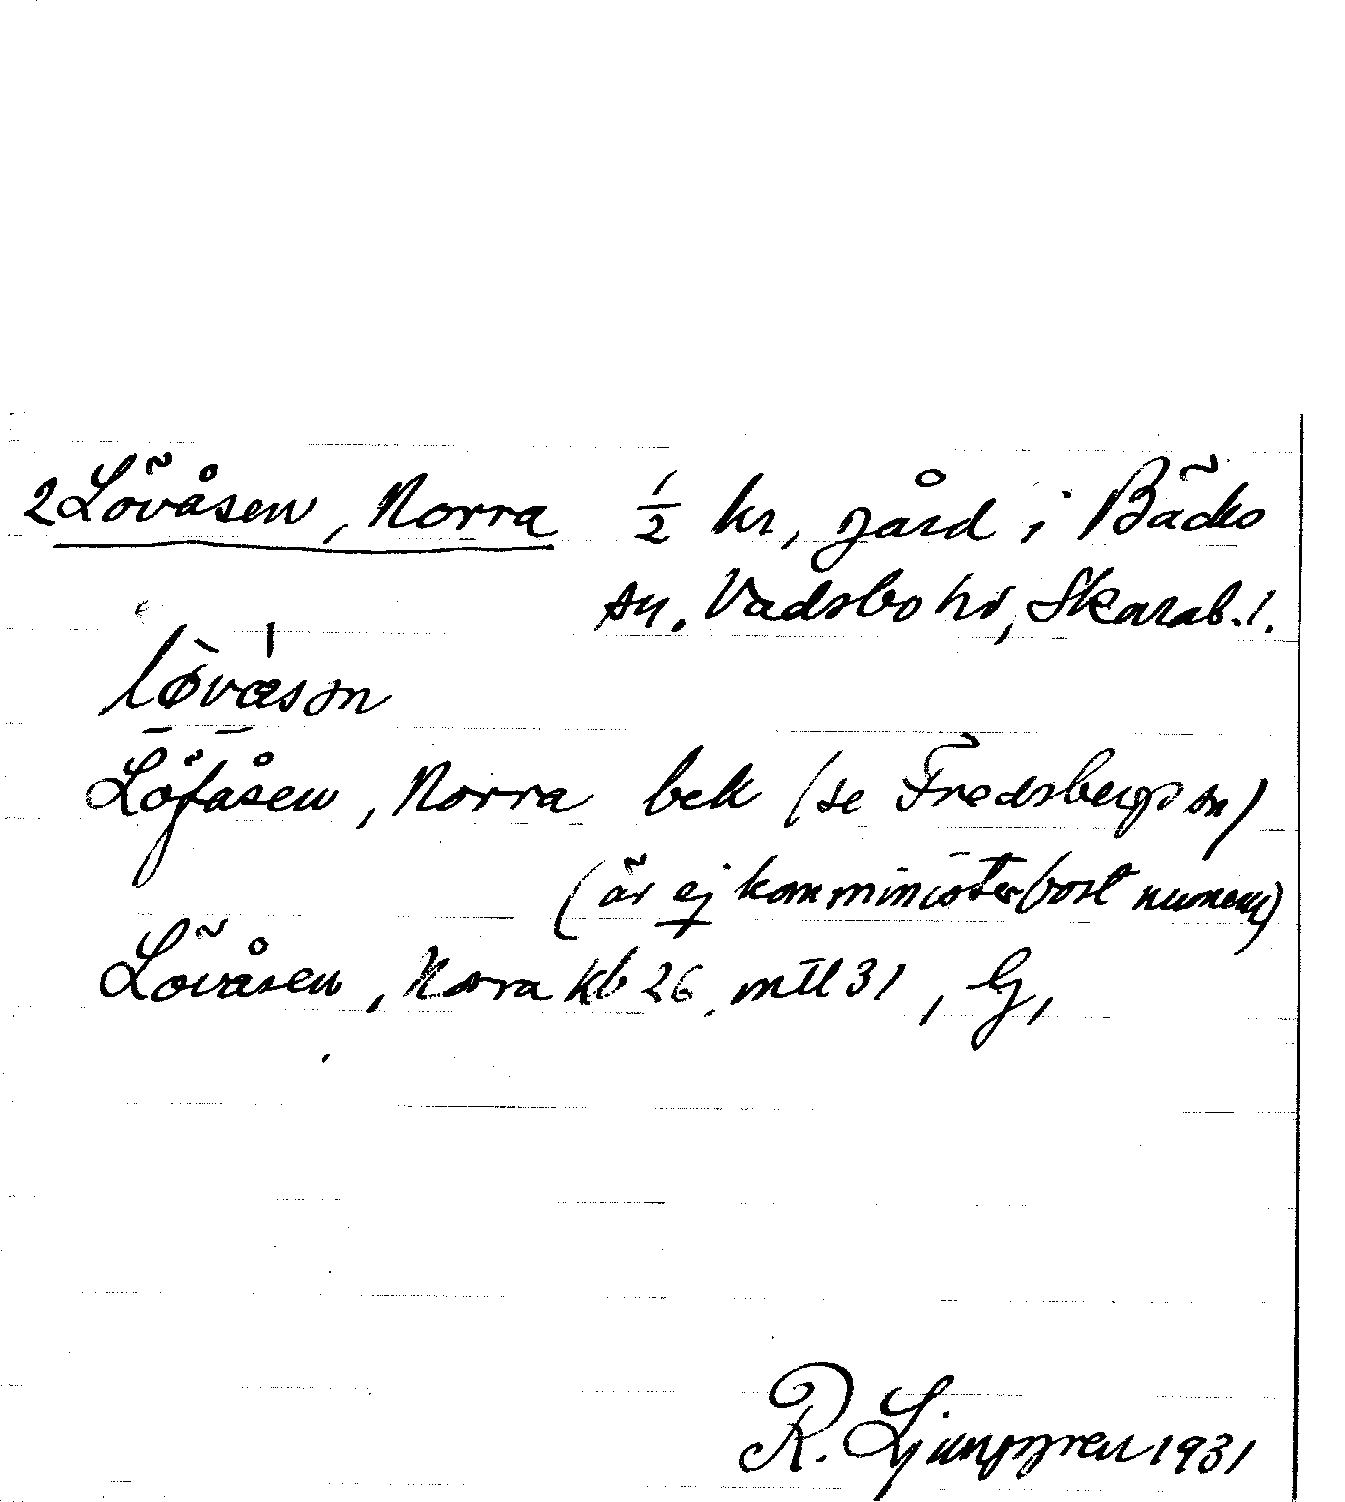 2 Lövåsen, Norra ½ kr, gård i Bäcks
sn. Vadsbo hd, Skarab. l.
lòvæsən
Löfåsen, Norra bek (se Fredsberg sn)
(är ej komministerbost numera)
Lövåsen, Norra kb 26, mtl 31, G,
R. Ljunggren 1931